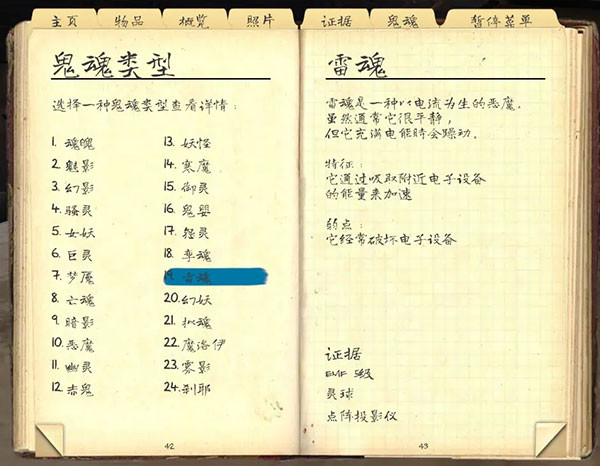 主页 物品 概览 照片 证据 鬼魂 暂停菜单
鬼魂类型
选择一种鬼魂类型查看详情：
1. 魂魄
2. 魅影
3. 幻影
4. 骚灵
5. 女妖
6. 巨灵
7. 梦魇
8. 亡魂
9. 暗影
10. 恶魔
11. 幽灵
12. 赤鬼
13. 妖怪
14. 寒魔
15. 御灵
16. 鬼婴
17. 怨灵
18. 孪魂
19. 雷魂
20. 幻妖
21. 拟魂
22. 魔洛伊
23. 雾影
24. 刹耶
42
雷魂
雷魂是一种以电流为生的恶魔.
虽然通常它很平静,
但它充满电能时会躁动.
特征:
它通过吸取附近电子设备
的能量来加速
弱点:
它经常破坏电子设备
证据
EMF 5级
灵球
点阵投影仪
43